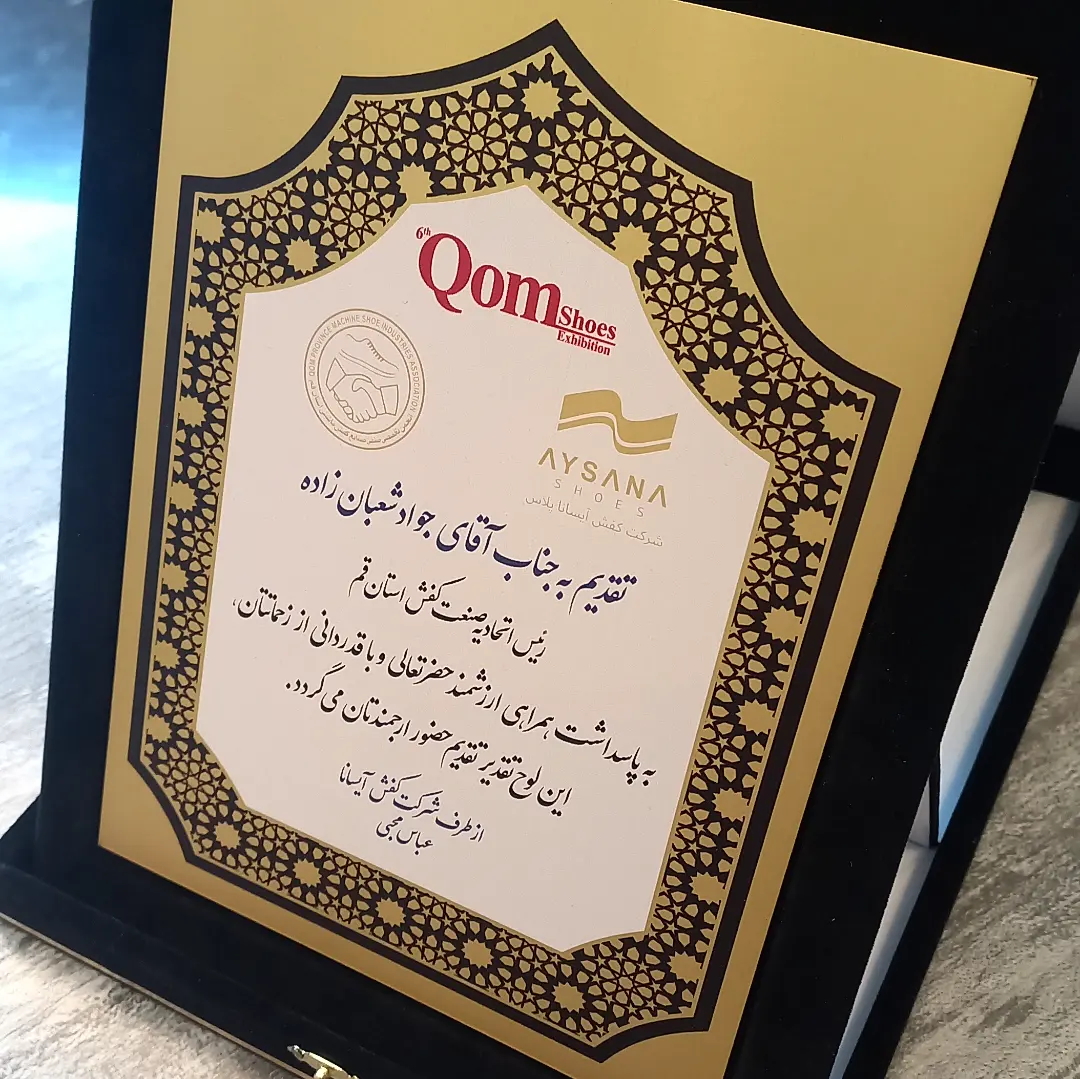 6th Qom Shoes Exhibition
QOM PROVINCE MACHINE SHOE INDUSTRIES ASSOCIATION
AYSANA
SHOES
شرکت کفش آیسانا پلاس
تقدیم به جناب آقای جواد شعبان زاده
رئیس اتحادیه صنعت کفش استان قم
به پاسداشت همراهی ارزشمند حضرتعالی و با قدردانی از زحماتتان،
این لوح تقدیر تقدیم حضور ارجمندتان می گردد.
از طرف شرکت کفش آیسانا
عباس محبی